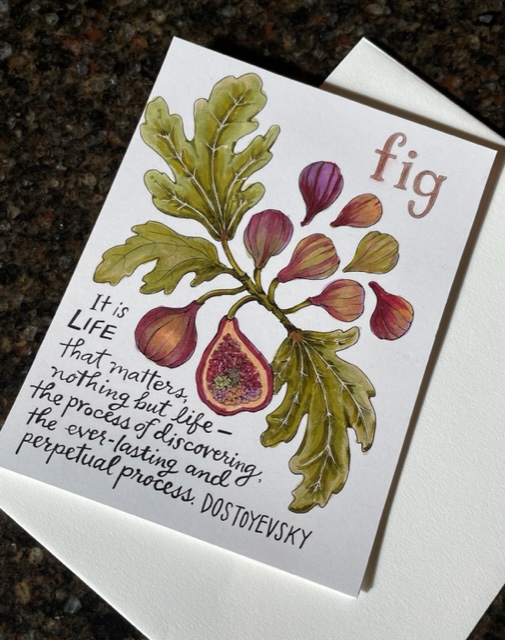 fig
It is
LIFE
that matters,
nothing but life—
the process of discovering,
the ever-lasting and
perpetual process. DOSTOYEVSKY